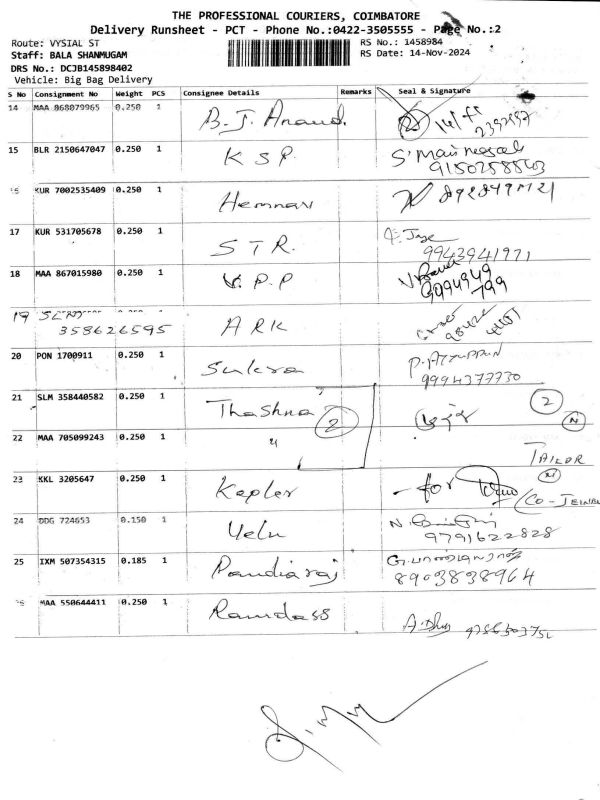 THE PROFESSIONAL COURIERS, COIMBATORE
Delivery Runsheet - PCT - Phone No.:0422-3505555 - Page No.:2
Route: VYSIAL ST RS No.: 1458984
Staff: BALA SHANMUGAM RS Date: 14-Nov-2024
DRS No.: DCJB145898402
Vehicle: Big Bag Delivery
S No Consignment No Weight PCS Consignee Details Remarks Seal & Signature
14 MAA 868079965 0.250 1 B. J. Anand.
15 BLR 2150647047 0.250 1 K S P.
9150258543
KUR 7002535409 0.250 1 Hemnav
17 KUR 531705678 0.250 1 S T R.
9943941971
18 MAA 867015980 0.250 1 V. P. P
9094949
799
19
358626595 A R K
20 PON 1700911 0.250 1 Sukra
9994377730
21 SLM 358440582 0.250 1 Thashna 2 2
N
22 MAA 705099243 0.250 1 "
TAILOR
N
23 KKL 3205647 0.250 1 Kepler for
24 DDG 724653 0.150 1 Velu
9791622828
25 IXM 507354315 0.185 1 Pandiaraj
8903838964
MAA 550644411 0.250 1 Ramdass